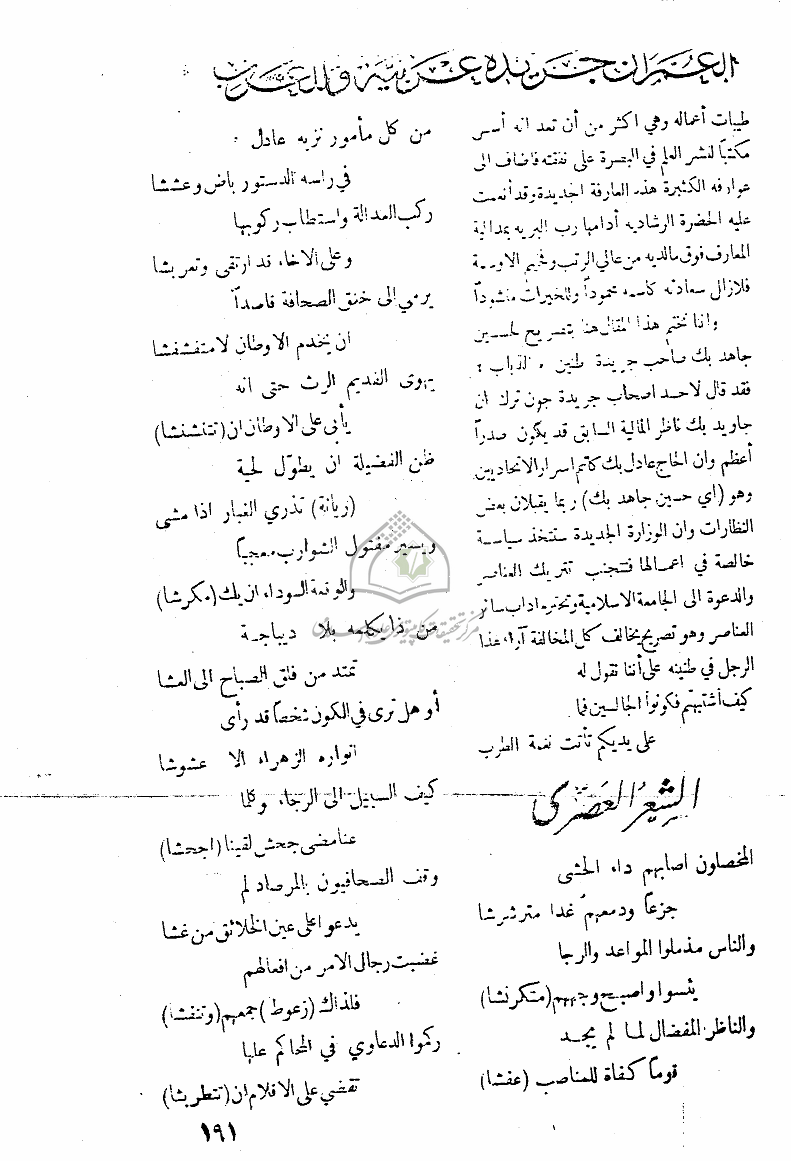 العمران جريدة عربية والعرب
طيبات أعماله وهي اكثر من أن تعد انه أسس
مكتباً لنشر العلم في البصرة على نفقته فاضاف الى
عوارفه الكثيرة هذه العارفة الجديدة وقد أنعمت
عليه الحضرة الرشاديه أدامها رب البريه بمدالية
المعارف فوق مالديه من عالي الرتب وفخيم الاوسمة
فلازال سعادته كاسمه محموداً وللخيرات منشوداً
وانا نختم هذا المقال هنا بتصريح لحسين
جاهد بك صاحب جريدة طنين « الذباب »
فقد قال لاحد اصحاب جريدة جون ترك ان
جاويد بك ناظر المالية السابق قد يكون صدراً
أعظم وان الحاج عادل بك كاتم اسرار الاتحاديين
وهو (اي حسين جاهد بك) ربما يقبلان بعض
النظارات وان الوزارة الجديدة ستتخذ سياسة
خالصة في اعمالها فتجنب تتريك العناصر
والدعوة الى الجامعة الاسلامية وتحترم اداب سائر
العناصر وهو تصريح يخالف كل المخالفة آراء هذا
الرجل في طنينه على أننا نقول له
كيف اشتهيتم فكونوا الجالسين فما
على يديكم تأتت نغمة الطرب
الشعر العصري
المخصلون اصابهم داء الحشى
جزعاً ودمعهم غدا مترشرشا
والناس مذملوا المواعد والرجا
يئسوا واصبح وجههم (متكرنشا)
والناظر المفضال لما لم يجد
قوماً كفاة للمناصب (عفشا)
من كل مأمور نزيه عادل
في راسه الدستور باض وعششا
ركب العدالة واستطاب ركوبها
وعلى الاخاء قد ارتقى وتعربشا
يرمي الى خنق الصحافة قاصداً
ان يخدم الاوطان لا متفشفشا
يهوى القديم الرث حتى انه
يأبى على الاوطان ان (تتنشنشا)
ظن الفضيلة ان يطوّل لحية
(ريانة) تذري الغبار اذا مشى
ويسير مفتول الشوارب معجباً
والوقعة السوداء ان يك (مكرشا)
من ذا يكلمه بلا ديباجية
تمتد من فلق الصباح الى العشا
أو هل ترى في الكون شخصاً قد رأى
انواره الزهراء الا عشوشا
كيف السبيل الى الرجاء وكلما
عنا مضى جحش لقينا (اجحشا)
وقف الصحافيون بالمرصاد لم
يدعوا على عين الخلائق من غشا
غضبت رجال الامر من افعالهم
فلذاك (زعوط) جمعهم (وتنفشا)
ركموا الدعاوي في المحاكم علها
تقضي على الاقلام ان (تتطربشا)
١٩١